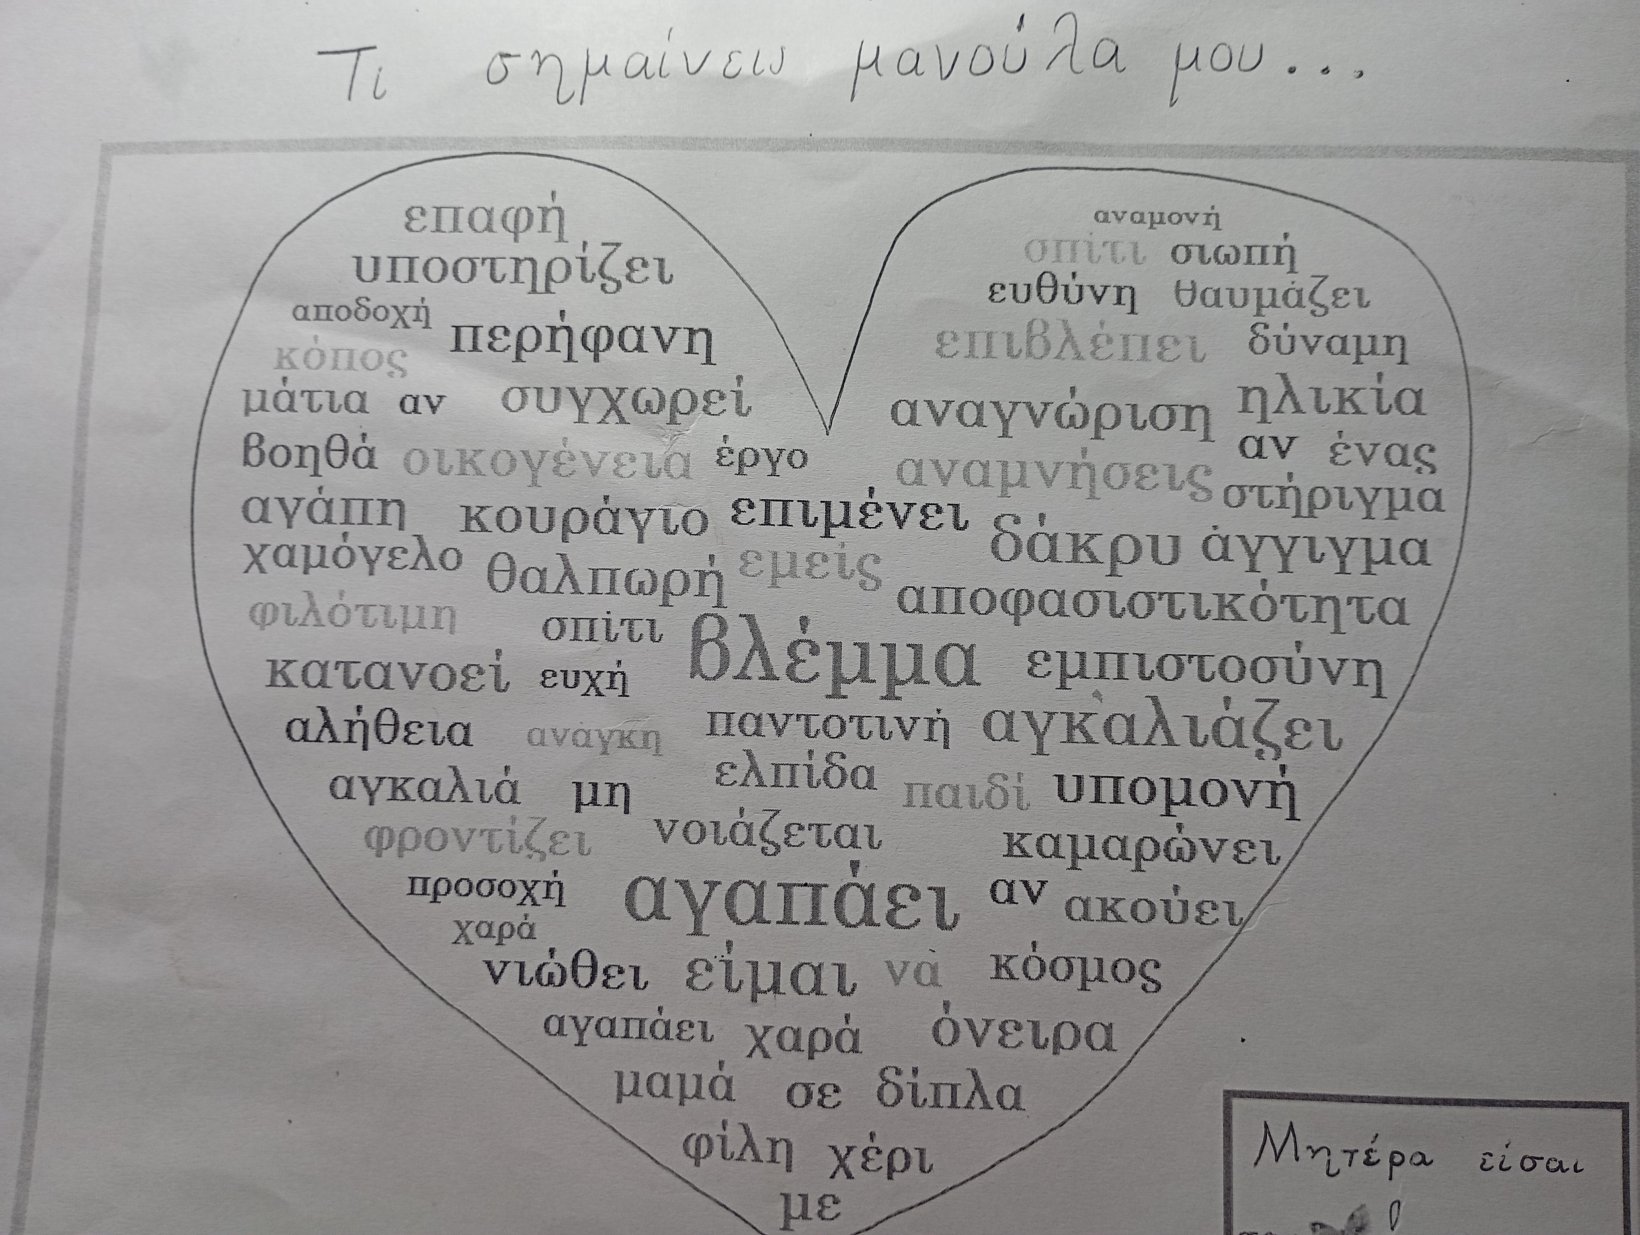 Τι σημαίνεις μανούλα μου...
επαφή
αναμονή
υποστηρίζει
σπίτι σιωπή
αποδοχή περήφανη
ευθύνη θαυμάζει
κόπος
επιβλέπει δύναμη
μάτια αν συγχωρεί
αναγνώριση ηλικία
βοηθά οικογένεια έργο
αν ένας
αναμνήσεις στήριγμα
αγάπη κουράγιο επιμένει
δάκρυ άγγιγμα
χαμόγελο θαλπωρή εμείς
αποφασιστικότητα
φιλότιμη σπίτι βλέμμα εμπιστοσύνη
κατανοεί ευχή
αλήθεια ανάγκη παντοτινή αγκαλιάζει
αγκαλιά μη ελπίδα παιδί υπομονή
φροντίζει νοιάζεται καμαρώνει
προσοχή αγαπάει αν ακούει
χαρά
νιώθει είμαι να κόσμος
αγαπάει χαρά όνειρα
μαμά σε δίπλα
φίλη χέρι
με
Μητέρα είσαι